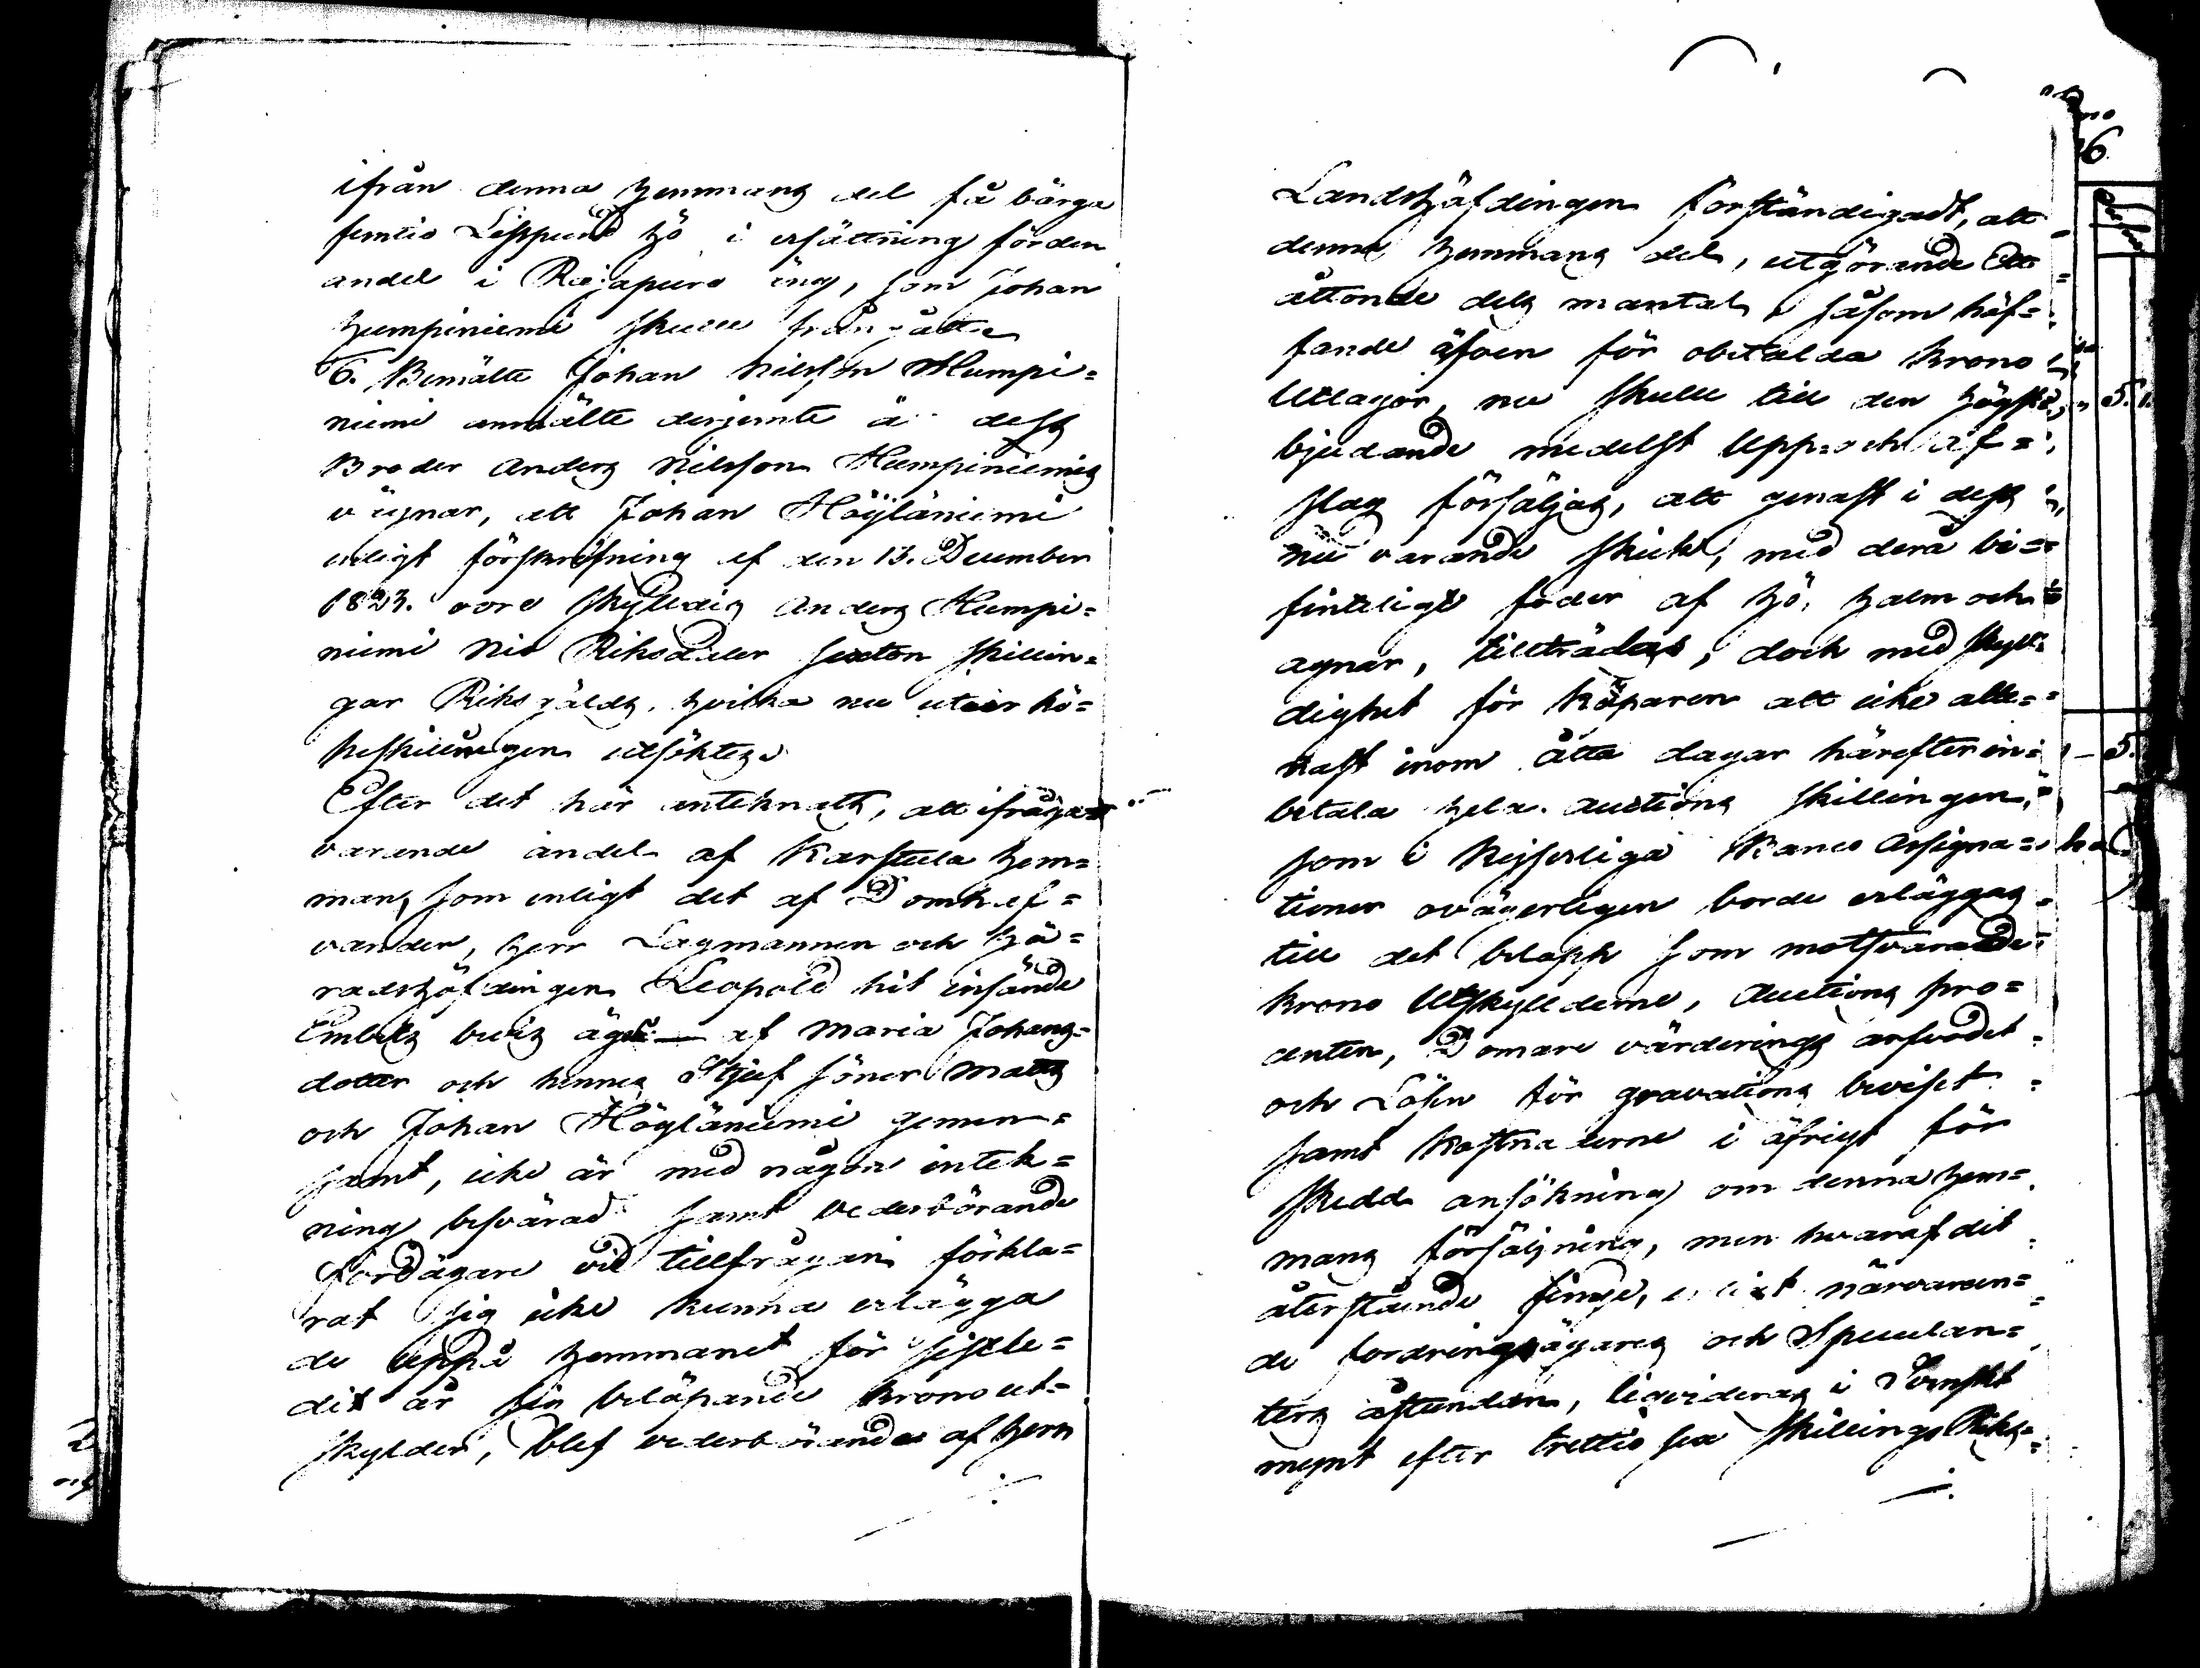 ifrån denna hemmans del få bärga
femtio Lispund hö i ersättning för den
andel i Rajapuro äng, som Johan
Humpiniemi skulle frångått.
6. Bemälte Johan Nilsson Humpi=
niemi anmälte derjemte å dess
Broder Anders Nilsson Humpiniemis
vägnar, att Johan Höyläniemi
enligt förskrifning af den 13. December
1823. vore skyldig Anders Humpi=
niemi Nio Riksdaler sexton skillin=
gar Riksgälds, hvilka nu utur kö=
peskillingen utsöktes.
Efter det här antecknats, att ifråga=
varande andel af Karstula hem=
man, som enligt det af Domhaf=
vanden, Herr Lagmannen och Hä=
radshöfdingen Leopold hit insände
Embets bevis äges af Maria Johans=
dotter och hennes Stjuf söner Matts
och Johan Höyläniemi gemen=
samt, icke är med någon inteck=
ning besvärad samt vederbörande
Jordägare vid tillfrågan förkla=
rat sig icke kunna erlägga
de uppå hemmanet för sistle=
dit år sig belöpande krono ut=
skylder, blef vederbörande af Herr
Landshöfdingen förständigadt, att
denna hemmans del, utgörande Ett
åttonde dels mantal, såsom häf=
tande äfven för obetalda Krono
Utlagor, nu skulle till den högst=
bjudande medelst Upp= och af=
slag försäljas, att genast i dess
nu varande skick, med derå be=
finteligt foder af hö, halm och
agnar, tillträdas, doch med skyl=
dighet för köparen att icke alle=
nast inom åtta dagar härefter in=
betala hela Auctions skillingen,
som i Kejserliga Banco Assigna=
tioner ovägerligen borde erläggas
till det belopp som motsvarade
Krono Utskylderne, Auctions pro=
centen, Domare värderings arfvodet
och Lösen för gravations beviset
samt kostnaderne i öfrigt för
skedd ansökning om denna hem=
mans försäljning, men hvaraf det
återstående finge, enligt närvaran=
de fordringsägares och Speculan=
ters åstundan, liqvideras i Svenskt
mynt efter trettio sex skillings Riks=